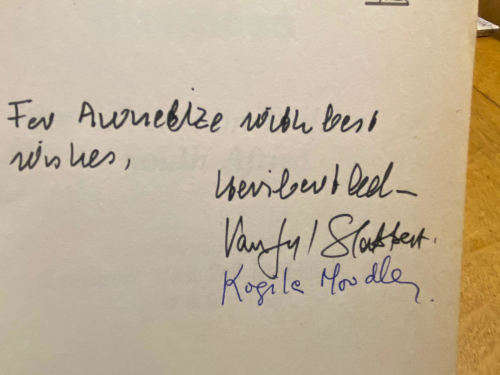 For Anneltze with best
wishes,
Heribert Ad–
Van Zyl Slabbert.
Kogila Moodley.